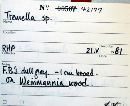 No 10567 42177
Tremella sp.
RHP 21.V -81
F.B's dull grey - 1 cm broad.
On Weinmannia wood.